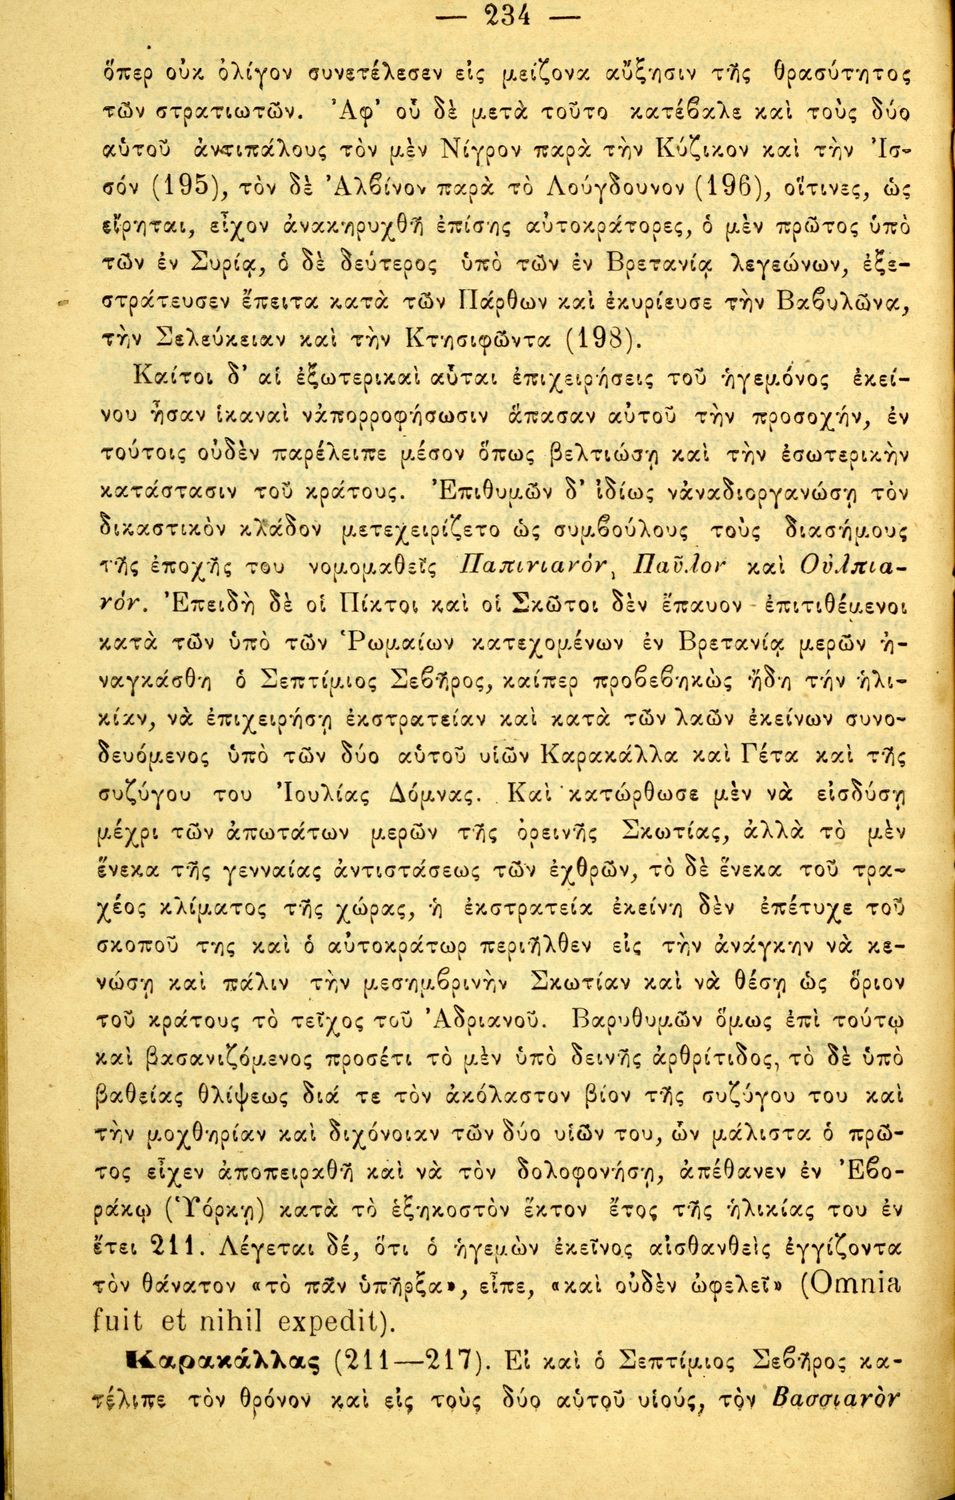 — 234 —
ὅπερ οὐκ ὀλίγον συνετέλεσεν εἰς μείζονα αὔξησιν τῆς θρασύτητος
τῶν στρατιωτῶν. Ἀφ' οὗ δὲ μετὰ τοῦτο κατέβαλε καὶ τοὺς δύο
αὑτοῦ ἀντιπάλους τὸν μὲν Νίγρον παρὰ τὴν Κύζικον καὶ τὴν Ἰσ-
σόν (195), τὸν δὲ Ἀλβίνον παρὰ τὸ Λούγδουνον (196), οἵτινες, ὡς
εἴρηται, εἶχον ἀνακηρυχθῆ ἐπίσης αὐτοκράτορες, ὁ μὲν πρῶτος ὑπὸ
τῶν ἐν Συρίᾳ, ὁ δὲ δεύτερος ὑπὸ τῶν ἐν Βρετανίᾳ λεγεώνων, ἐξε-
στράτευσεν ἔπειτα κατὰ τῶν Πάρθων καὶ ἐκυρίευσε τὴν Βαβυλῶνα,
τὴν Σελεύκειαν καὶ τὴν Κτησιφῶντα (198).
Καίτοι δ' αἱ ἐξωτερικαὶ αὗται ἐπιχειρήσεις τοῦ ἡγεμόνος ἐκεί-
νου ἦσαν ἱκαναὶ νἀπορροφήσωσιν ἅπασαν αὐτοῦ τὴν προσοχήν, ἐν
τούτοις οὐδὲν παρέλειπε μέσον ὅπως βελτιώσῃ καὶ τὴν ἐσωτερικὴν
κατάστασιν τοῦ κράτους. Ἐπιθυμῶν δ' ἰδίως νἀναδιοργανώσῃ τὸν
δικαστικὸν κλάδον μετεχειρίζετο ὡς συμβούλους τοὺς διασήμους
τῆς ἐποχῆς του νομομαθεῖς Παπινιανόν, Παῦλον καὶ Οὐλπια-
νόν. Ἐπειδὴ δὲ οἱ Πίκτοι καὶ οἱ Σκῶτοι δὲν ἔπαυον ἐπιτιθέμενοι
κατὰ τῶν ὑπὸ τῶν Ῥωμαίων κατεχομένων ἐν Βρετανίᾳ μερῶν ἠ-
ναγκάσθη ὁ Σεπτίμιος Σεβῆρος, καίπερ προβεβηκὼς ἤδη τήν ἡλι-
κίαν, νὰ ἐπιχειρήσῃ ἐκστρατείαν καὶ κατὰ τῶν λαῶν ἐκείνων συνο-
δευόμενος ὑπὸ τῶν δύο αὑτοῦ υἱῶν Καρακάλλα καὶ Γέτα καὶ τῆς
συζύγου του Ἰουλίας Δόμνας. Καὶ κατώρθωσε μὲν νὰ εἰσδύσῃ
μέχρι τῶν ἀπωτάτων μερῶν τῆς ὀρεινῆς Σκωτίας, ἀλλὰ τὸ μὲν
ἕνεκα τῆς γενναίας ἀντιστάσεως τῶν ἐχθρῶν, τὸ δὲ ἕνεκα τοῦ τρα-
χέος κλίματος τῆς χώρας, ἡ ἐκστρατεία ἐκείνη δὲν ἐπέτυχε τοῦ
σκοποῦ της καὶ ὁ αὐτοκράτωρ περιῆλθεν εἰς τὴν ἀνάγκην νὰ κε-
νώσῃ καὶ πάλιν τὴν μεσημβρινὴν Σκωτίαν καὶ νὰ θέσῃ ὡς ὅριον
τοῦ κράτους τὸ τεῖχος τοῦ Ἀδριανοῦ. Βαρυθυμῶν ὅμως ἐπὶ τούτῳ
καὶ βασανιζόμενος προσέτι τὸ μὲν ὑπὸ δεινῆς ἀρθρίτιδος, τὸ δὲ ὑπὸ
βαθείας θλίψεως διά τε τὸν ἀκόλαστον βίον τῆς συζύγου του καὶ
τὴν μοχθηρίαν καὶ διχόνοιαν τῶν δύο υἱῶν του, ὧν μάλιστα ὁ πρῶ-
τος εἶχεν ἀποπειραθῆ καὶ νὰ τὸν δολοφονήσῃ, ἀπέθανεν ἐν Ἐβο-
ράκῳ (Ὑόρκῃ) κατὰ τὸ ἑξηκοστὸν ἕκτον ἔτος τῆς ἡλικίας του ἐν
ἔτει 211. Λέγεται δέ, ὅτι ὁ ἡγεμὼν ἐκεῖνος αἰσθανθεὶς ἐγγίζοντα
τὸν θάνατον «τὸ πᾶν ὑπῆρξα», εἶπε, «καὶ οὐδὲν ὠφελεῖ» (Omnia
fuit et nihil expedit).
Καρακάλλας (211—217). Εἰ καὶ ὁ Σεπτίμιος Σεβῆρος κα-
τέλιπε τὸν θρόνον καὶ εἰς τοὺς δύο αὑτοῦ υἱούς, τὸν Βασσιανὸν